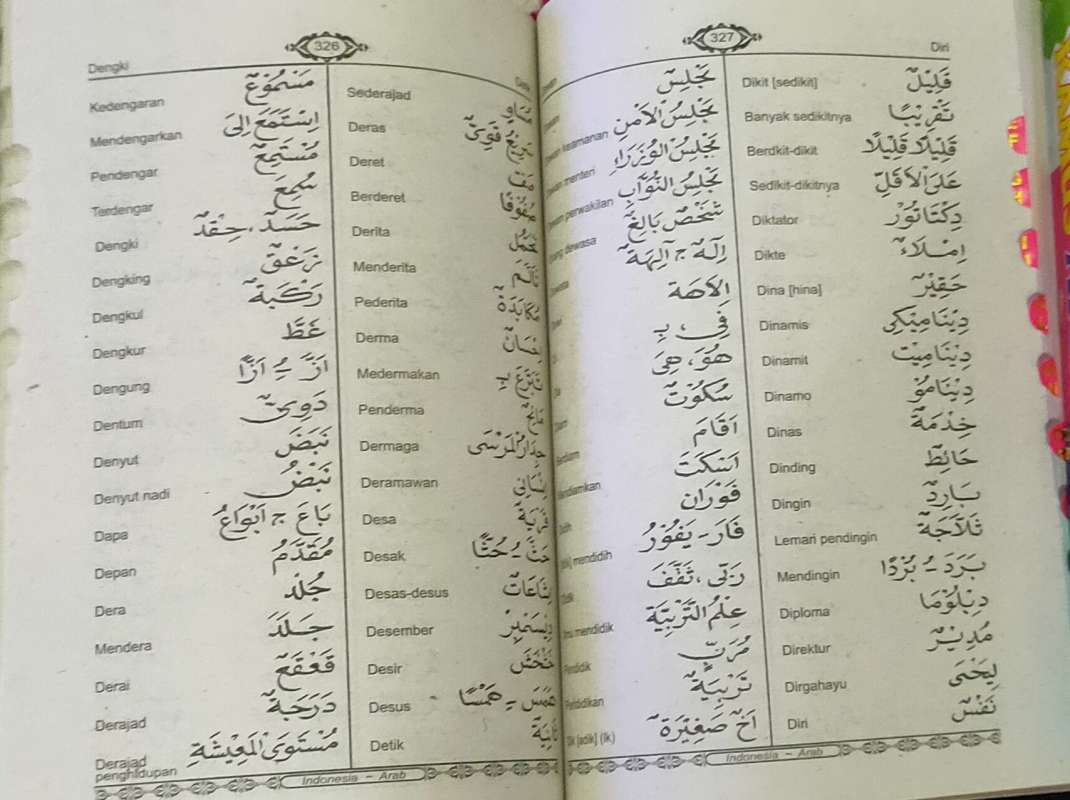 326
Dengki
Kedengaran مَسْمُوْعٌ
Mendengarkan اِسْتَمَعَ اِلَى
Pendengar مُسْتَمِعٌ
Terdengar سُمِعَ
Dengki حَسَدٌ، حِقْدٌ
Dengking زَعْقٌ
Dengkul رُكْبَةٌ
Dengkur غَطَّ
Dengung اَزَّ ـُ اَزًّا
Dentum دَوِيٌّ
Denyut نَبَضَ
Denyut nadi نَبْضٌ
Dapa بَاعَ ج اَبْوَاعُ
Depan مُقَدَّمُ
Dera جُلْد
Mendera جَلَدَ
Derai قَعْقَعَ
Derajad دَرَجَةٌ
Derajad
penghidupan مُسْتَوَى الْمَعِيْشَةِ
Sederajad
Deras سَرِيْعٌ قَوِيٌّ
Deret
Berderet
Derita
Menderita
Pederita
Derma
Medermakan تَبَرَّعَ بِـ
Penderma
Dermaga جِدَارُ الْمَرْسَى
Deramawan
Desa قَرْيَةٌ
Desak حَثَّ ـُ حُثًّا
Desas-desus
Desember دِيْسَمْبِرْ
Desir
Desus هَمَسَ ـِ هَمْسًا
Detik ثَانِيَةٌ
Indonesia ~ Arab
327
Diri
مَجْلِسٌ
keamanan مَجْلِسُ الْاَمْنِ
menteri مَجْلِسُ الْوُزَرَاءِ
perwakilan مَجْلِسُ النُّوَّابِ
dewasa شَخْصٌ بَالِغٌ
اِلَهٌ ج آلِهَةٌ
اِلَاهَة
فِي، بِـ
هُوَ، هِيَ
سُكُوْتٌ
اَقَامَ
اَسْكَتَ
فَوْرَان
mendidih فَارَ - يَفُوْرُ
رَبَّى، ثَقَّفَ
mendidik عِلْمُ التَّرْبِيَةِ
مُرَبٍّ
تَرْبِيَةٌ
[adik] (lk) اَخٌ صَغِيْرَةٌ
Dikit [sedikit] قَلِيْلٌ
Banyak sedikitnya تَقْرِيْبًا
Berdkit-dikit قَلِيْلًا قَلِيْلًا
Sedikit-dikitnya عَلَى الْاَقَلِّ
Diktator دِكْتَاتُوْرْ
Dikte اِمْلَاءٌ
Dina [hina] حَقِيْرٌ
Dinamis دِيْنَامِيْكِى
Dinamit دِيْنَامِيْت
Dinamo دِيْنَامُوْ
Dinas خِدْمَةٌ
Dinding حَائِطٌ
Dingin بَارِدٌ
Lemari pendingin ثَلَّاجَةٌ
Mendingin بَرَدَ ـُ بُرْدًا
Diploma دِبْلُوْمَا
Direktur مُدِيْرٌ
Dirgahayu لِيَحْيَى
Diri نَفْسٌ
Indonesia ~ Arab